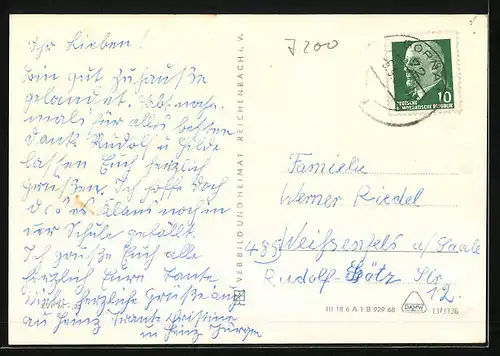 Ihr Lieben!
Bin gut Zuhauße
gelandet. Hab noch-
mals für alles besten
Dank. Rudolf u. Hilde
lassen Euch herzlich
grüßen. Ich hoffe doch
das es Klaus noch in
der Schule gefällt.
Ich grüße Euch alle
herzlich Eure Tante
herzliche Grüße auch
an Heinz Tante Christine
u. Heinz Jürgen
7200
10
DEUTSCHE
DEMOKRATISCHE REPUBLIK
VERBILD UND HEIMAT REICHENBACH I. V.
Familie
Werner Riedel
485 Weißenfels a/Saale
Rudolf-Götz Str
12.
III 18 6 A 1 B 929 68
DAMW